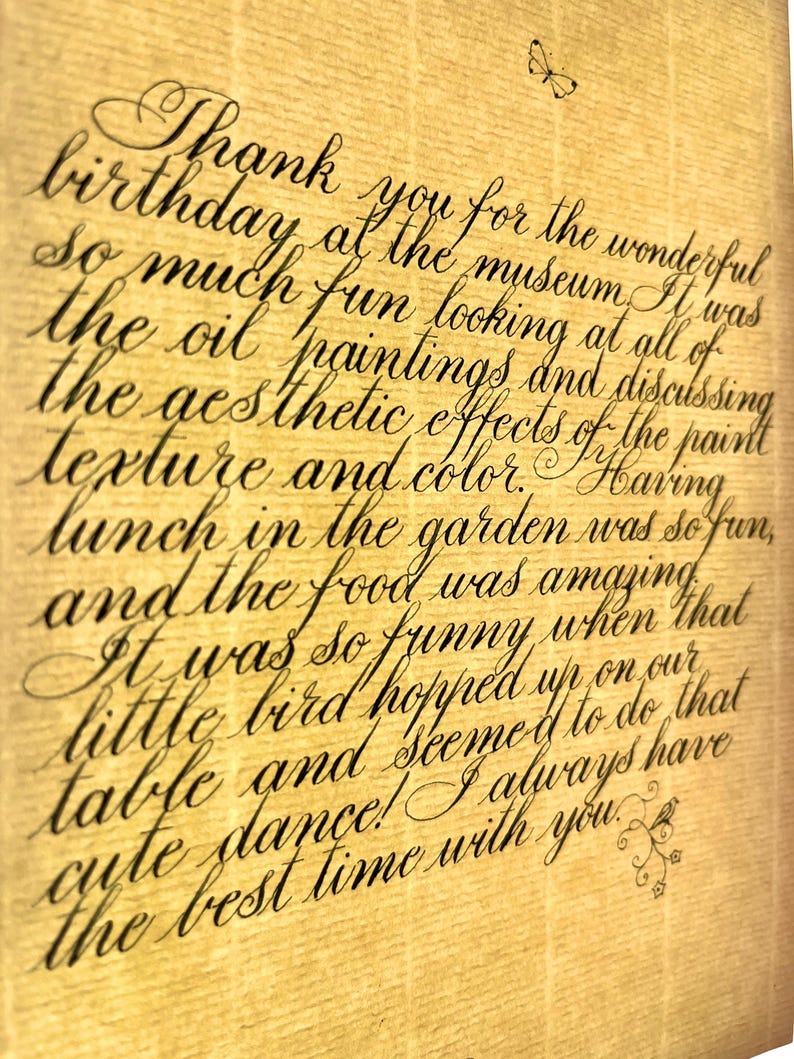 Thank you for the wonderful
birthday at the museum. It was
so much fun looking at all of
the oil paintings and discussing
the aesthetic effects of the paint
texture and color. Having
lunch in the garden was so fun,
and the food was amazing.
It was so funny when that
little bird hopped up on our
table and seemed to do that
cute dance! I always have
the best time with you.